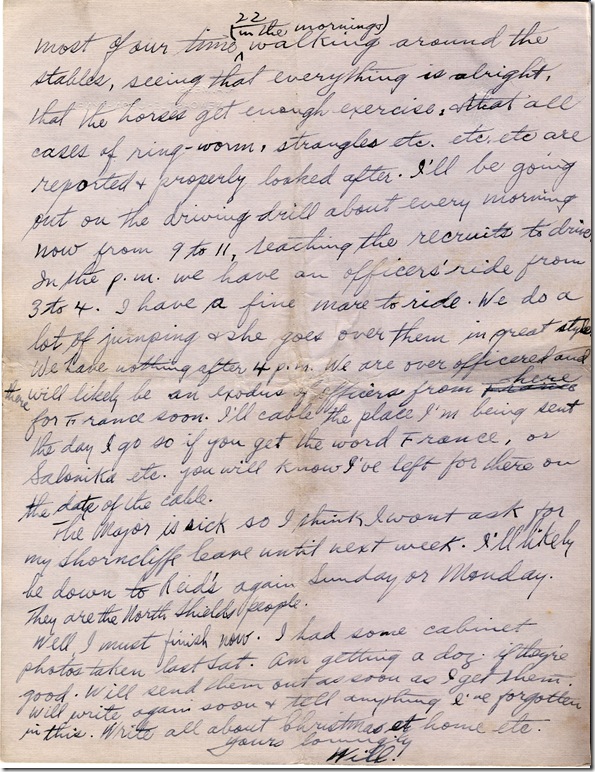 22
(in the mornings)
most of our time ^ walking around the
stables, seeing that everything is alright,
that the horses get enough exercise, that all
cases of ring-worm, strangles etc. etc. etc are
reported & properly looked after. I'll be going
out on the driving drill about every morning
now from 9 to 11, teaching the recruits to drive.
In the p.m. we have an officers' ride from
3 to 4. I have a fine mare to ride. We do a
lot of jumping & she goes over them in great style.
We have nothing after 4 p.m. We are over officered and
there will likely be an exodus of officers from France here
for France soon. I'll cable the place I'm being sent
the day I go so if you get the word France, or
Salonika etc. you will know I've left for there on
the date of the cable.
The Major is sick so I think I wont ask for
my Shorncliffe leave until next week. I'll likely
be down to Reid's again Sunday or Monday.
They are the North Shields people.
Well, I must finish now. I had some cabinet
photos taken last Sat. Am getting a doz. if they're
good. Will send them out as soon as I get them.
Will write again soon & tell anything I've forgotten
in this. Write all about Christmas at home etc.
Yours lovingly
Will!